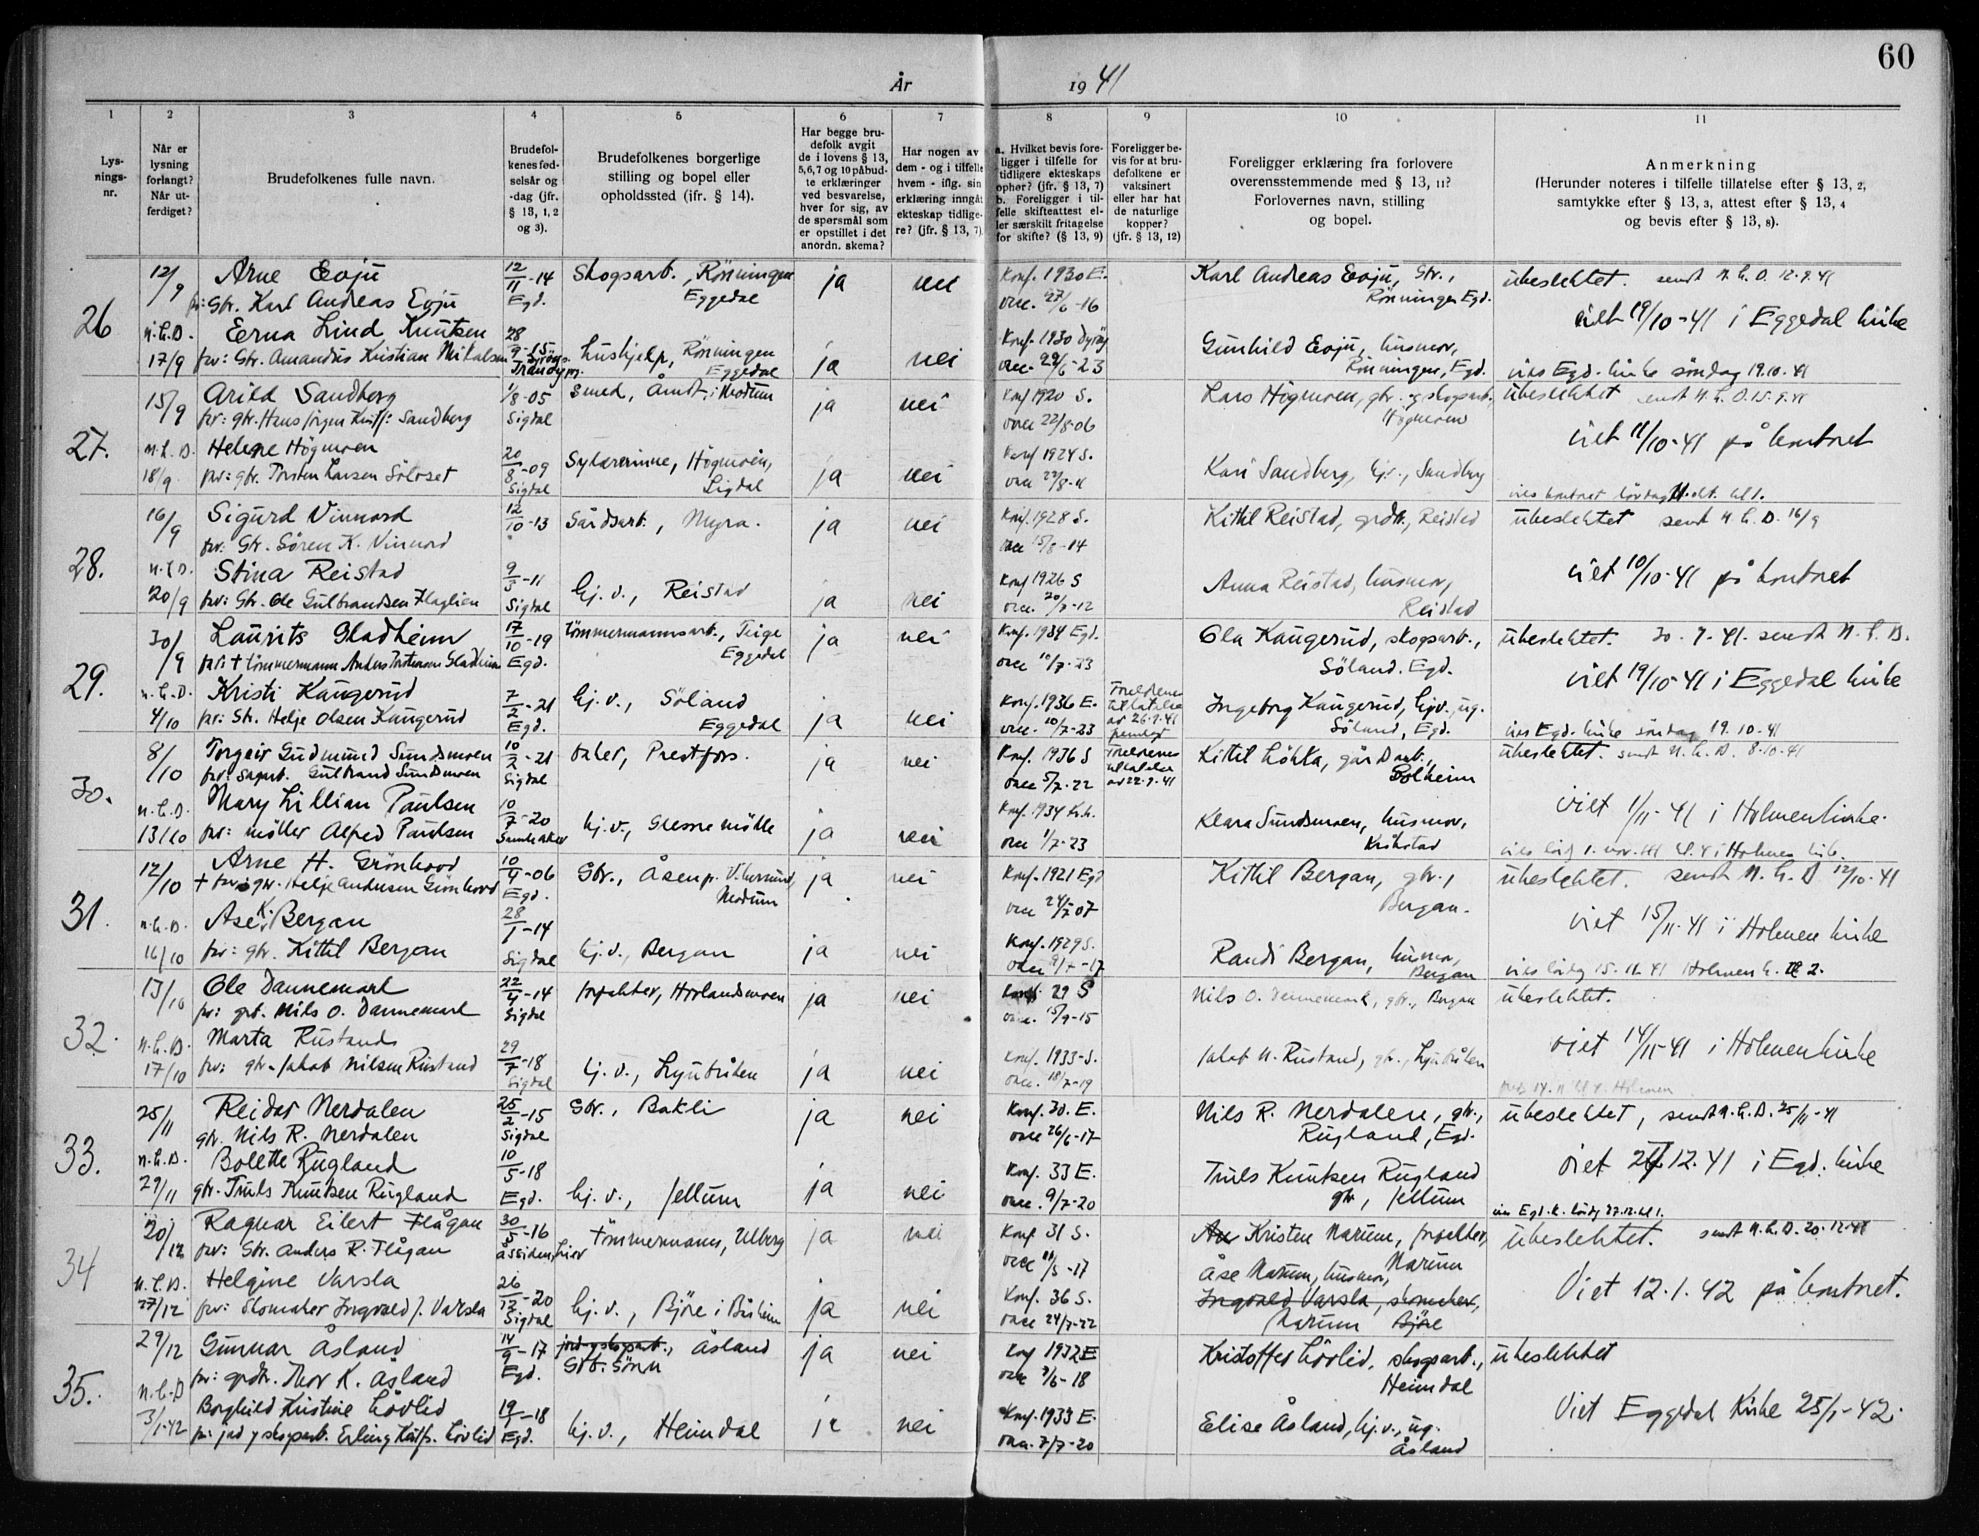 60
År 1941
1 2 3 4 5 6 7 8 9 10 11
Lys-
nings-
nr.
Når er
lysning
forlangt?
Når ut-
ferdiget?
Brudefolkenes fulle navn.
Brudefol-
kenes fød-
selsår og
-dag (jfr.
§ 13, 1, 2
og 3).
Brudefolkenes borgerlige
stilling og bopel eller
opholdssted (ifr. § 14).
Har begge bru-
defolk avgit
de i lovens § 13,
5,6,7 og 10 påbud-
te erklæringer
ved besvarelse,
hver for sig, av
de spørsmål som
er opstillet i det
anordn. skema?
Har nogen av
dem - og i tilfelle
hvem - iflg. sin
erklæring inngåt
ekteskap tidlige-
re? (jfr. § 13, 7)
a. Hvilket bevis fore-
ligger i tilfelle for
tidligere ekteskaps
ophør? (jfr. § 13, 7)
b. Foreligger i til-
felle skifteattest el-
ler særskilt fritagelse
for skifte? (§ 13, 9)
Foreligger be-
vis for at bru-
defolkene er
vaksinert
eller har hat
de naturlige
kopper?
(jfr. § 13, 12)
Foreligger erklæring fra forlovere
overensstemmende med § 13, 11?
Forlovernes navn, stilling
og bopel.
Anmerkning
(Herunder noteres i tilfelle tillatelse efter § 13, 2,
samtykke efter § 13, 3, attest efter § 13, 4
og bevis efter § 13, 8).
26
12/9 Arne Evju 12/11-14 Skogsarb., Rönningen ja nei Konf. 1930 E. Karl Andreas Evju, Gbr., ubeslektet. sendt N.L.D. 12-9-41
Gbr. Karl Andreas Evju Egd. Eggedal vacc. 27/6-16 Rönningen Egd.
viet 19/10-41 i Eggedal kirke
N.L.D. Erna Lind Knutsen 28/9-15 hushjelp, Rönningen ja nei Konf. 1930 Gunhild Evju, husmor,
17/9 far: Gbr. Amandus Kristian Mikalsen Eggedal vacc. 29/6-23 Rönningen, Egd. vies Egd. kirke söndag 19.10.41
27.
15/9 Arild Sandberg 1/8-05 Smed, Åmot i Modum ja nei Konf 1920 S. Lars Högmoen, gbr. og skogsarb., ubeslektet sendt N.L.D. 15.9.41
far: gbr. Hans Jörgen Sandberg Sigdal vacc 22/8-06 Högmoen
viet 11/10-41 på kontoret
N.L.D. Helene Högmoen 20/8-09 Sylærerinne, Högmoen, ja nei Konf 1924 S. Kari Sandberg, hj.v., Sandberg
18/9 far: gbr. Torsten Larsen Sigdal Sigdal vacc 22/8-11 vies kontoret lördag 11. okt. kl 1.
28.
16/9 Sigurd Vinnord 12/10-13 Gårdsarb., Myra. ja nei Konf. 1928 S. Kittil Reistad, grdbr., Reistad ubeslektet sendt N.L.D. 16/9
far: Gbr. Sören K. Vinnord vacc 15/8-14
viet 10/10-41 på kontoret
N.L.D. Stina Reistad 9/3-11 hj.v., Reistad ja nei Konf 1926 S Anna Reistad, husmor,
20/9 far: Gbr. Ole Gulbrandsen Haglien Sigdal vacc. 20/7-12 Reistad
29.
30/9 Laurits Gladheim 17/10-19 tömmermannsarb., Teige ja nei Konf. 1934 Egd. Ola Kaugerud, skogsarb., ubeslektet. 30.9.41. sendt N.L.D.
far: + tömmermann Anders Torstensen Gladheim Egd. Eggedal vacc 10/7-23 Söland. Egd.
viet 19/10-41 i Eggedal kirke
N.L.D. Kristi Kaugerud 7/2-21 hj.v., Söland ja nei Konf. 1936 E. Foreldrenes tillatelse av 26.9.41 Ingeborg Kaugerud, hj.v., ug.
4/10 far: Gbr. Helje Olsen Kaugerud Egd. Eggedal vacc. 10/7-23 Söland, Egd. vies Egd. kirke söndag 19.10.41
30.
8/10 Torgeir Gudmund Sundsmoen 10/2-21 baker, Prestfoss. ja nei Konf. 1936 S Foreldrenes tillatelse av 22.9.41 Kittil Löhka, gårdsarb., Solheim ubeslektet. sendt N.L.D. 8.10.41
far: sagarb. Gulbrand Sundsmoen Sigdal vacc 5/7-22
viet 1/11-41 i Holmen kirke.
N.L.D. Mary Lillian Paulsen 10/7-20 hj.v., Gresne mölle ja nei Konf. 1934 Klara Sundsmoen, husmor,
13/10 far: möller Alfred Paulsen vacc 1/7-23 vies lörd. 1. nov. kl. 4 i Holmen kirke.
31.
12/10 Arne H. Grönhovd 10/4-06 Gbr., Åsen p. Vikersund, ja nei Konf. 1921 Egd Kittil Bergan, gbr., ubeslektet. sendt N.L.D 12/10-41
+ far: gbr. Helje Andersen Grönhovd Egd. Modum vacc 24/7 07 Bergan.
viet 15/11-41 i Holmen kirke
N.L.D. Åse K. Bergan 28/1-14 hj.v., Bergan ja nei Konf. 1929 S. Randi Bergan, husmor,
16/10 far: gbr. Kittil Bergan Sigdal Bergan vies lördag 15.11.41 Holmen k. kl 2.
32.
13/10 Ole Dannemark 22/4-14 forpakter, Hovlandsmoen ja nei Konf 29 S Nils O. Dannemark, gbr., Bergan ubeslektet.
far: gbr. Nils O. Dannemark Sigdal vacc. 15/9-15
viet 14/11-41 i Holmen kirke
N.L.D. Marta Rustand 29/7-18 hj.v., Lyubråten ja nei Konf. 1933-S. Jakob N. Rustand, gbr., Lyubråten
17/10 far: gbr. Jakob Nilsen Rustand Sigdal vacc. 18/7-19
33.
25/11 Reidar Nerdalen 25/2-15 Gbr., Bakli ja nei Konf. 30. E. Nils R. Nerdalen, gbr., ubeslektet, sendt N.L.D. 25/11-41
gbr. Nils R. Nerdalen Sigdal vacc 26/6-17 Rugland, Egd.
viet 27.12.41 i Egd. kirke
N.L.D. Bolette Rugland 10/5-18 hj.v., Jellum ja nei Konf. 33 E. Truls Knutsen Rugland
29/11 gbr. Truls Knutsen Rugland Egd. vacc. 9/7-20 gbr., Jellum vies Egd. k. lördg 27.12. kl 1.
34
20/12 Ragnar Eilert Flågan 30/5-16 Tömmermann, Ulberg ja nei Konf 31 S. Kristen Narum, forpakter, Narum ubeslektet. sendt N.L.D. 20.12.41
far: Gbr. Anders R. Flågan vacc 11/5-17 Åse Narum, husmor,
Viet 12.1.42 på kontoret.
N.L.D. Helgine Varsla 26/12-20 hj.v., Björe i ja nei Konf. 36 S. Ingvald Varsla, skomaker,
27/12 far: Skomaker Ingvald J. Varsla Sigdal vacc 24/7-22 Narum Björe
35.
29/12 Gunnar Åsland 14/9-17 jord-og skogsarb., Åsland ja nei Konf 1932 E Kristoffer Lövlid, skogsarb., ubeslektet
far: grdbr. Thor K. Åsland Egd. Gbr. Sönn vacc 3/6-18 Heimdal
Viet Eggedal Kirke 25/1-42.
N.L.D Borghild Kristine Lövlid 19/1-18 hj.v., Heimdal ja nei Konf. 1933 E. Elise Åsland, hj.v., ug.
3/1-42 far: jord og skogsarb. Erling Kristf. Lövlid Egd. vacc. 7/7-20 Åsland